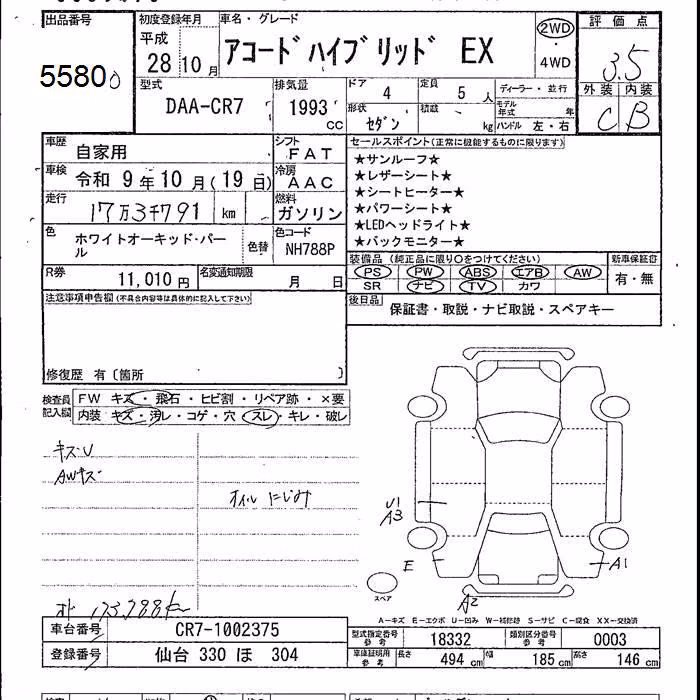 出品番号 初度登録年月 車名・グレード 評価点
平成 28 10月 アコードハイブリッド EX 2WD・4WD 3.5
5580
型式 排気量 ドア 定員 ディーラー・並行 外装 内装
DAA-CR7 1993 CC 4 5人 モデル年式 年 C B
形状 セダン 積載 kg ハンドル 左・右
車歴 自家用 シフト FAT セールスポイント(正常に機能するものに限ります)
車検 令和 9年10月(19日) 冷房 AAC
走行 17万3千791 km 燃料 ガソリン
★サンルーフ★
★レザーシート★
★シートヒーター★
★パワーシート★
★LEDヘッドライト★
★バックモニター★
色 ホワイトオーキッド・パール 色替 色コード NH788P
装備品(純正品に限り○をつけてください) 新車保証書
PS PW ABS エアB AW 有・無
SR ナビ TV カワ
R券 11,010円 名変通知期限 月 日
後日品 保証書・取説・ナビ取説・スペアキー
注意事項申告欄(不具合内容等は具体的に記入して下さい)
修復歴 有〔箇所 〕
検査員記入欄 FW キズ・飛石・ヒビ割・リペア跡・×要
内装 キズ・汚レ・コゲ・穴 スレ・キレ・破レ
キズ・U
AWキズ
オイルにじみ
U1
A3
E
A1
A2
スペア
173,788km
A-キズ E-エクボ U-凹み W-補修跡 S-サビ C-腐食 XX-交換済
車台番号 CR7-1002375 型式指定番号 参考 18332 類別区分番号 参考 0003
登録番号 仙台 330 ほ 304 車庫証明用 参考 長さ 494cm 幅 185cm 高さ 146cm